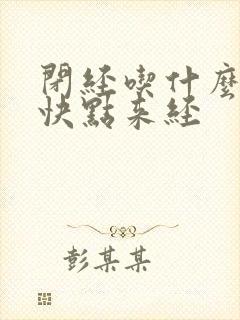 閉經喫什麼
快點來經
彭某某